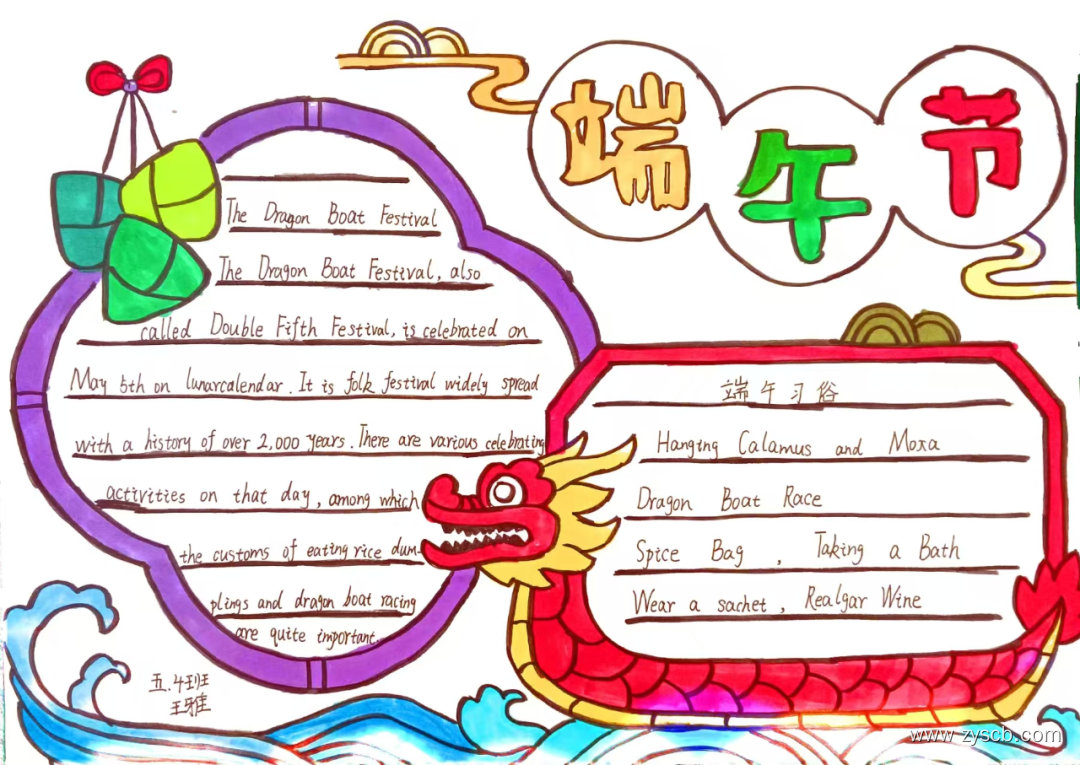 端午节
The Dragon Boat Festival
The Dragon Boat Festival, also
called Double Fifth Festival, is celebrated on
May 5th on lunarcalendar. It is folk festival widely spread
with a history of over 2,000 years. There are various celebrating
activities on that day, among which
the customs of eating rice dum-
plings and dragon boat racing
are quite important.
五.4班
王雅
端午习俗
Hanging Calamus and Moxa
Dragon Boat Race
Spice Bag , Taking a Bath
Wear a sachet , Realgar Wine
www.zyscb.com